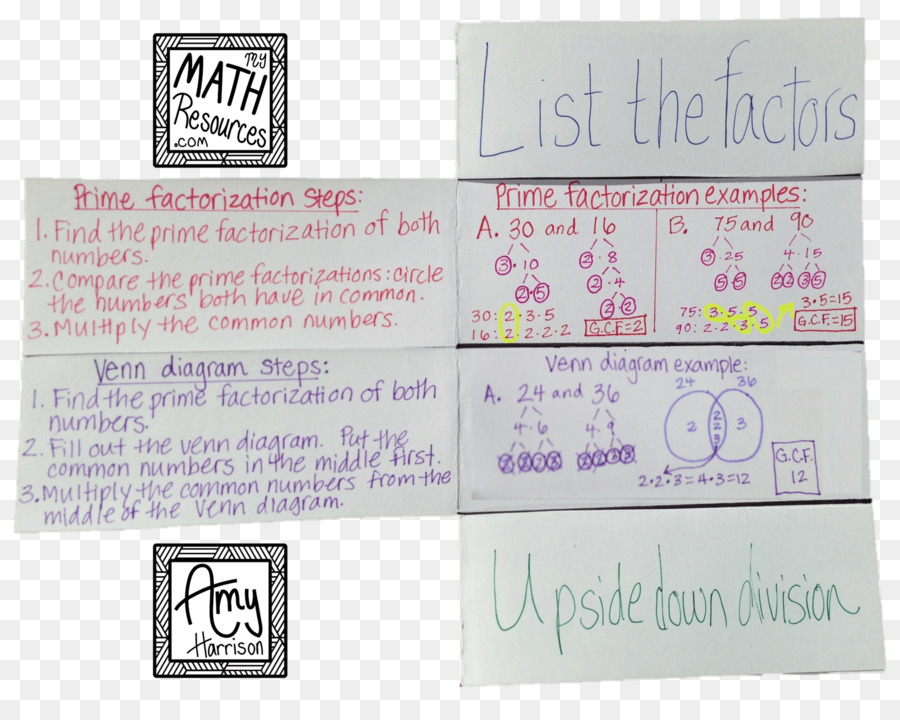 my
MATH
Resources
.com
List the factors
Prime factorization Steps:
1. Find the prime factorization of both
numbers.
2. Compare the prime factorizations: circle
the numbers both have in common.
3. Multiply the common numbers.
Prime factorization examples:
A. 30 and 16
3 · 10
2 · 5
2 · 8
2 · 4
2 · 2
30: 2 · 3 · 5
16: 2 · 2 · 2 · 2
G.C.F.=2
B. 75 and 90
3 · 25
5 5
4 · 15
2 2 3 5
75: 3 · 5 · 5
90: 2 · 2 · 3 · 5
3 · 5 = 15
G.C.F.=15
Venn diagram Steps:
1. Find the prime factorization of both
numbers.
2. Fill out the venn diagram. Put the
common numbers in the middle first.
3. Multiply the common numbers from the
middle of the Venn diagram.
Venn diagram example:
A. 24 and 36
4 · 6
2 2 2 3
4 · 9
2 2 3 3
24
36
2
2
2
3
3
2 · 2 · 3 = 4 · 3 = 12
G.C.F.
12
Amy
Harrison
Upside down division